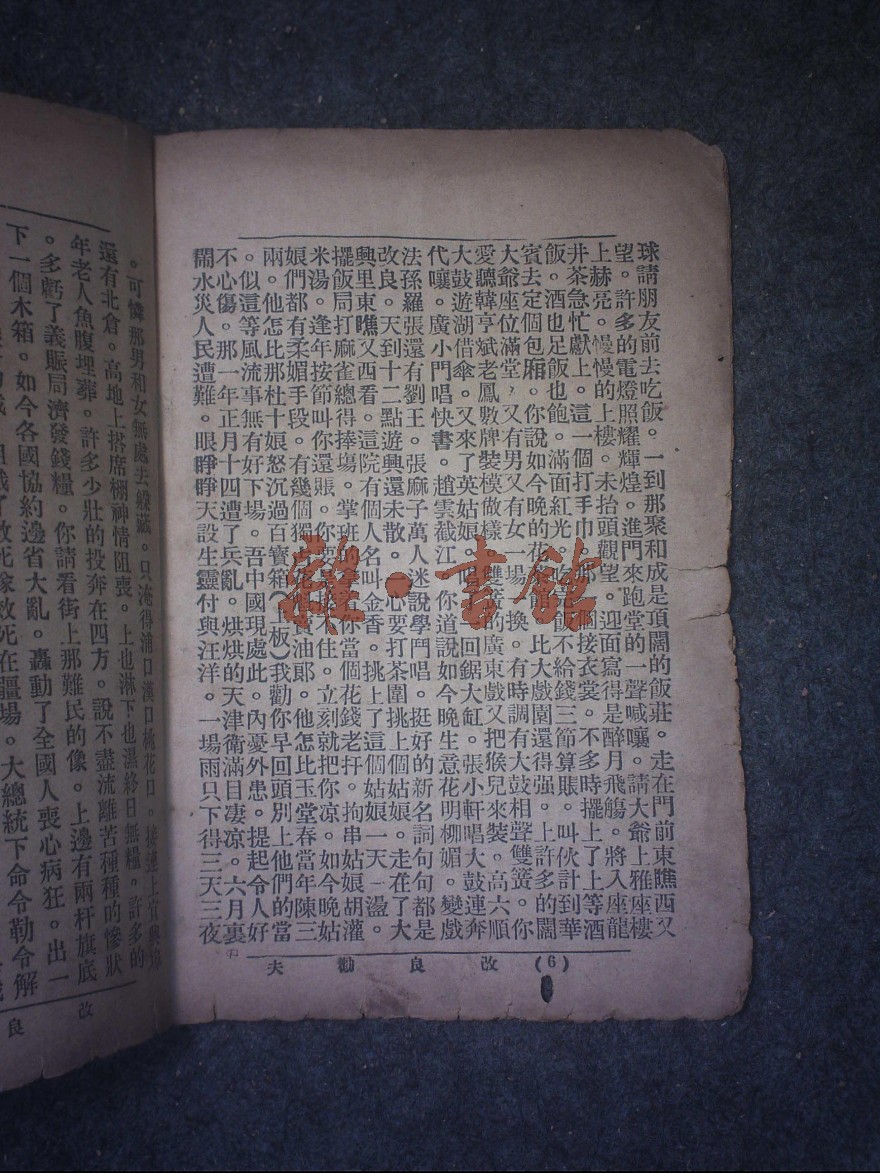 球請朋友前去吃飯。一到那聚和成是項闊的飯莊。走在門前東瞧西又
望。許多的電燈照耀輝煌。進門來跑堂的一聲喊嚷。請大爺上雅座樓
上赫亮。慢慢的上樓。未抬頭觀望。迎面寫得是醉月飛觴。將入座龍
井茶急忙獻上。這一個打手巾那個接衣裳。不多時擺上了上等酒
飯。酒也足飯也飽。滿面紅光。吃飯不給錢三節算賬。叫伙計到華
賓去定個包廂。你說如今晚的花 比大戲園還得强。上許多的闊
大爺座位滿堂。又有男又有女一場 換。有時調有大鼓相聲雙簧。你
愛聽韓亨斌老鳳數牌裝模做樣。雙簧的廣東戲又把猴兒來裝。高六順
大鼓遊湖借傘。又來了英姑娘。唱 回鋸大缸。張小軒唱大鼓連奔
代嚷。廣小門唱快書。趙雲截江。你道說如今晚生意花明柳媚。變戲
法孫羅張還有劉王。張麻子萬人迷說學鬥唱。挺好的新名詞句句都是
改良。天到十二點遊興還未散。心要打茶圍挑上個姑娘。走在了大
興里東瞧又西看。這院有個人名叫金香。挑上了這個姑娘一天一盪。
擺飯局打麻雀總得捧塲。掌班的 你當個花錢老扞。拘串姑娘胡灌
米湯。逢年按節叫你還賬。你要是 不住。立刻就把你凉。如今晚姑
娘們都有柔媚手段。有幾個獨 賣油郎。他怎比玉堂春當年陳三
兩。他怎比那杜十娘怒沉過百寶箱(上板)我勸你早回頭別上他們的當
。似這等風流事無有好下場。吾中國現處此。內憂外患。提起令人好
不心傷。那一年正月十四遭了兵亂。烘烘的天津衛滿目凄凉。六月裏
鬧水災人民遭難。眼睜睜天設生靈付與汪洋。一場雨只下得三天三夜
(6) 改良勸夫
。可憐那男和女無處去躲藏。只淹得浦口漢口桃花口。接連上官
還有北倉。高地上搭席棚神情阻喪。上也淋下也濕終日無糧。許多的
年老人魚腹埋葬。許多少壯的投奔在四方。說不盡流離苦種種的慘狀
。多虧了義賬局濟發錢糧。你請看街上那難民的像。上邊有兩杆旗底
下一個木箱。如今各國協約邊省大亂。轟動了全國人喪心病狂。出一
死在疆場。大總統下命令勒令解
改良
雜·書館